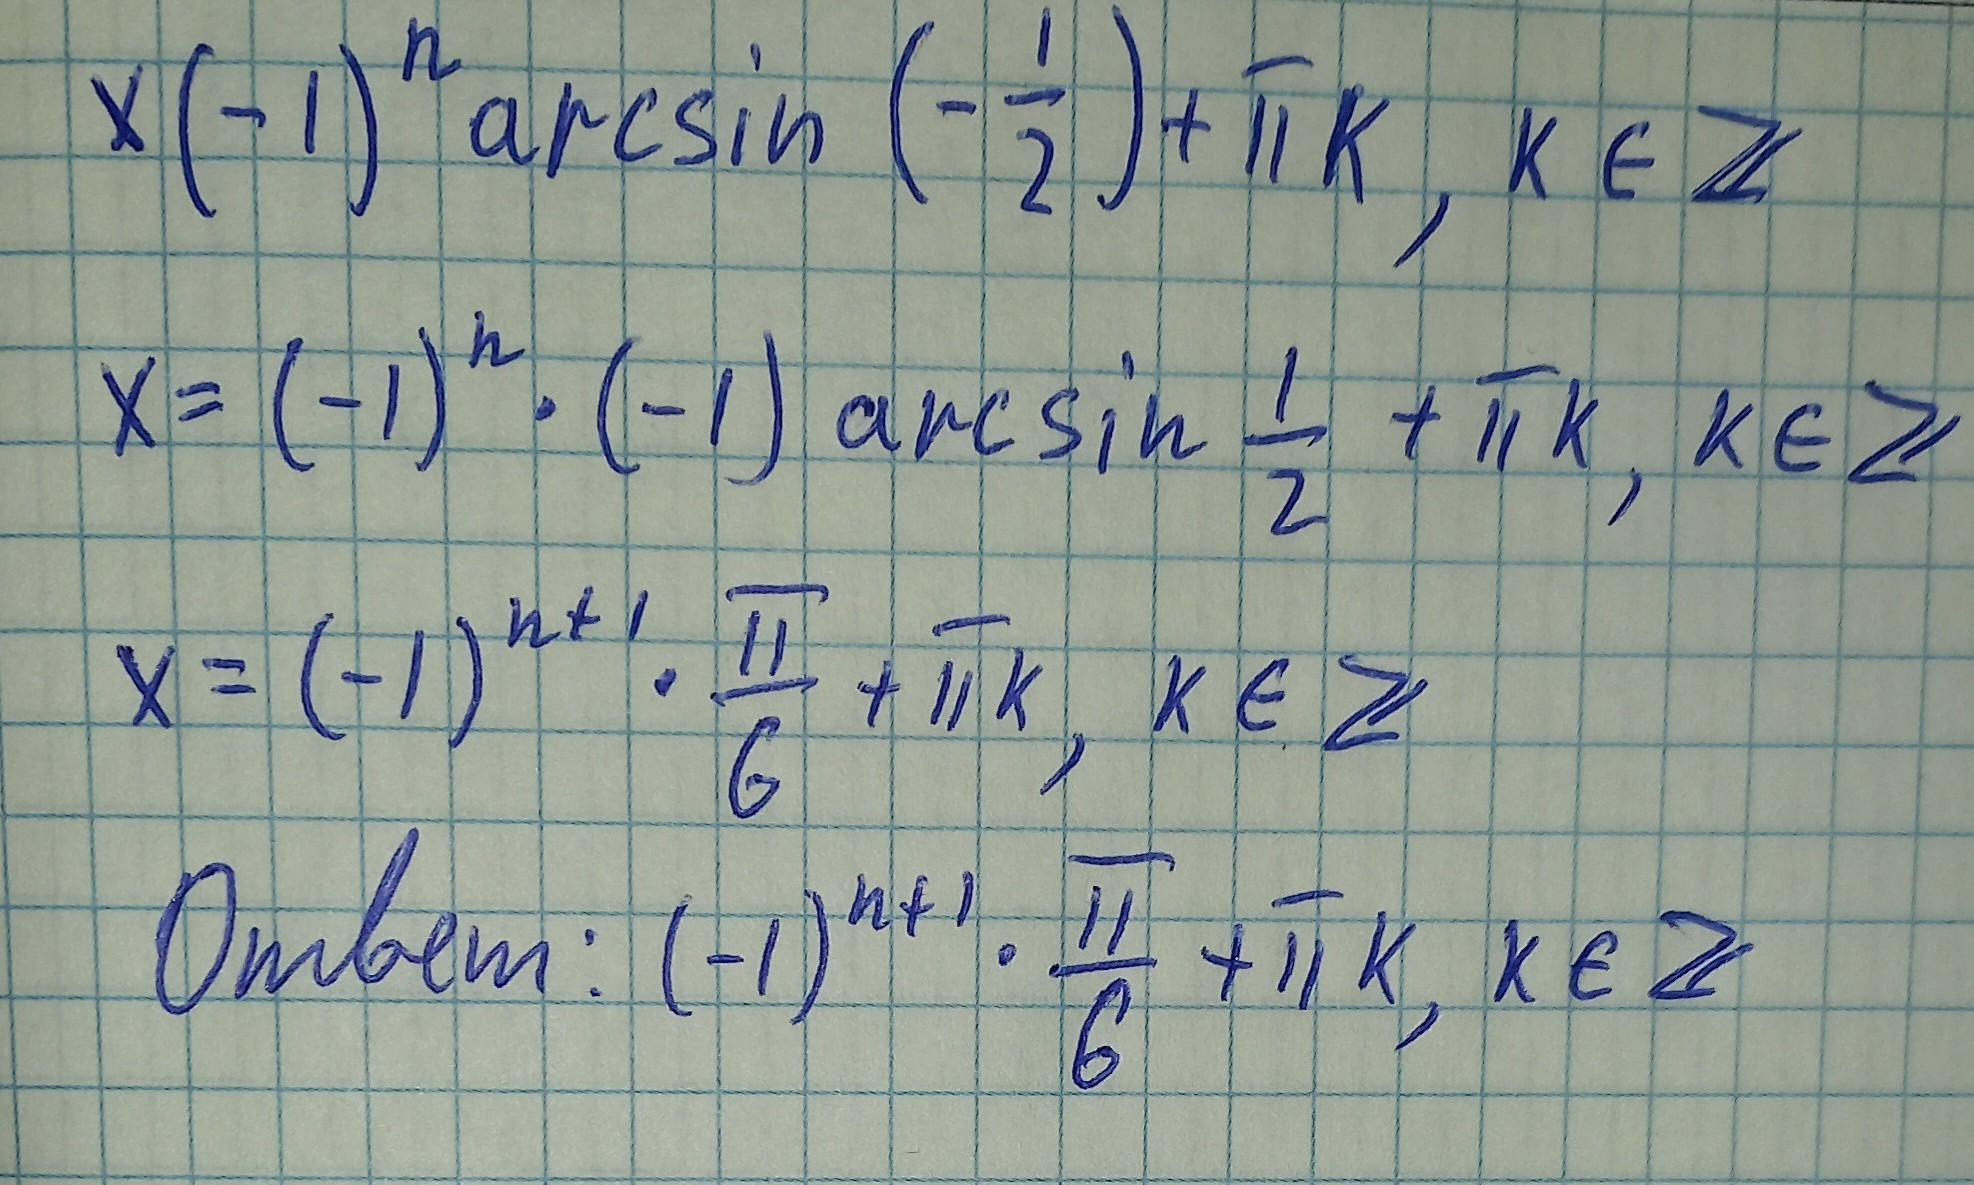 x(-1)^n arcsin(-1/2) + πk, k ∈ ℤ
x = (-1)^n · (-1) arcsin 1/2 + πk, k ∈ ℤ
x = (-1)^{n+1} · π/6 + πk, k ∈ ℤ
Ответ: (-1)^{n+1} · π/6 + πk, k ∈ ℤ